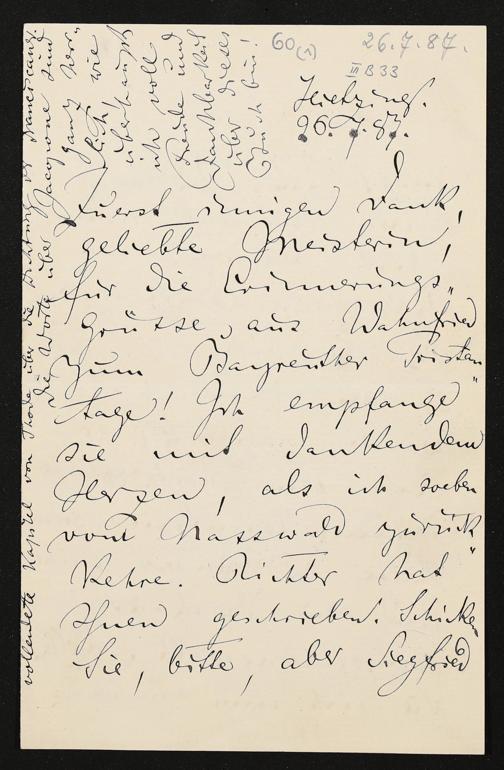 60 (1)
26.7.87.
III B 33
Hietzing.
26.7.87.
Zuerst innigen Dank,
geliebte Meisterin,
für die Erinnerungs„
grüsse aus Wahnfried
zum Bayreuther Tristan„
tage! Ich empfange
sie mit dankendem
Herzen, als ich soeben
vom Nasswald zurück„
kehre. Richter hat
Ihnen geschrieben. Schicken
Sie, bitte, aber Siegfried
vollendete Kapitel von Thode über die Dichtung der Franciscaner.
Die Worte über Jacopone sind
ganz herr„
lich, wie
überhaupt
ich voll
Freude und
Dankbarkeit
über dieses
Buch bin!